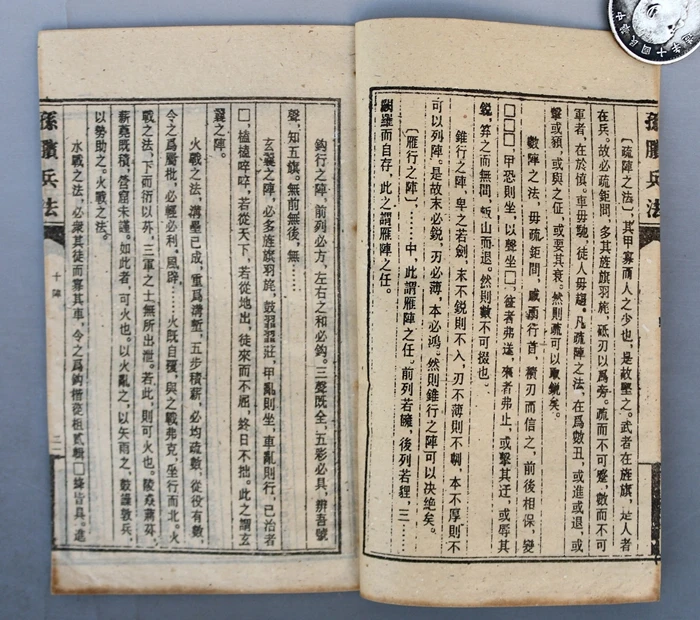 中華民國十年
孫臏兵法
〔疏陣之法〕,其甲寡而人之少也,是故堅之。武者在旌旗,是人者
在兵。故必疏鉅間,多其旌旗羽旄,砥刃以爲旁。疏而不可蹙,數而不可
軍者,在於慎。車毋馳,徒人毋趨。凡疏陣之法,在爲數丑,或進或退,或
擊或䫉,或與之征,或要其衰。然則疏可以取鋭矣。
數陣之法,毋疏鉅間,戚而行首,積刃而信之,前後相保,變
□□□,甲恐則坐,以聲坐□,往者弗送,來者弗止,或擊其迂,或辱其
鋭,筭之而無間,䡊山而退。然則數不可掇也。
錐行之陣,卑之若劍,末不鋭則不入,刃不薄則不剸,本不厚則不
可以列陣。是故末必鋭,刃必薄,本必鴻。然則錐行之陣可以決绝矣。
〔雁行之陣〕,……中,此謂雁陣之任。前列若㢕,後列若貍,三……
闕羅而自存,此之謂雁陣之任。
鈎行之陣,前列必方,左右之和必鈎。三聲既全,五彩必具,辨吾號
聲,知五旗。無前無後,無……
玄翼之陣,必多旌旗羽旄,鼓翟翟莊,甲亂則坐,車亂則行,已治者
□,榼榼啐啐,若從天下,若從地出,徒來而不屈,終日不拙。此之謂玄
翼之陣。
火戰之法,溝壘已成,重爲溝塹,五步積薪,必均疏數,從役有數,
令之爲屬枇,必輕必利,風辟……火既自覆,與之戰弗克,坐行而北。火
戰之法,下而衍以䒺,三軍之士無所出泄。若此,則可火也。陵猋蔣䒺,
薪蕘既積,營窟未謹。如此者,可火也。以火亂之,以矢雨之,鼓譟敦兵,
以勢助之。火戰之法。
水戰之法,必衆其徒而寡其車,令之爲鈎楷蓯柤貳輯□絳皆具。進
孫臏兵法
十陣
二